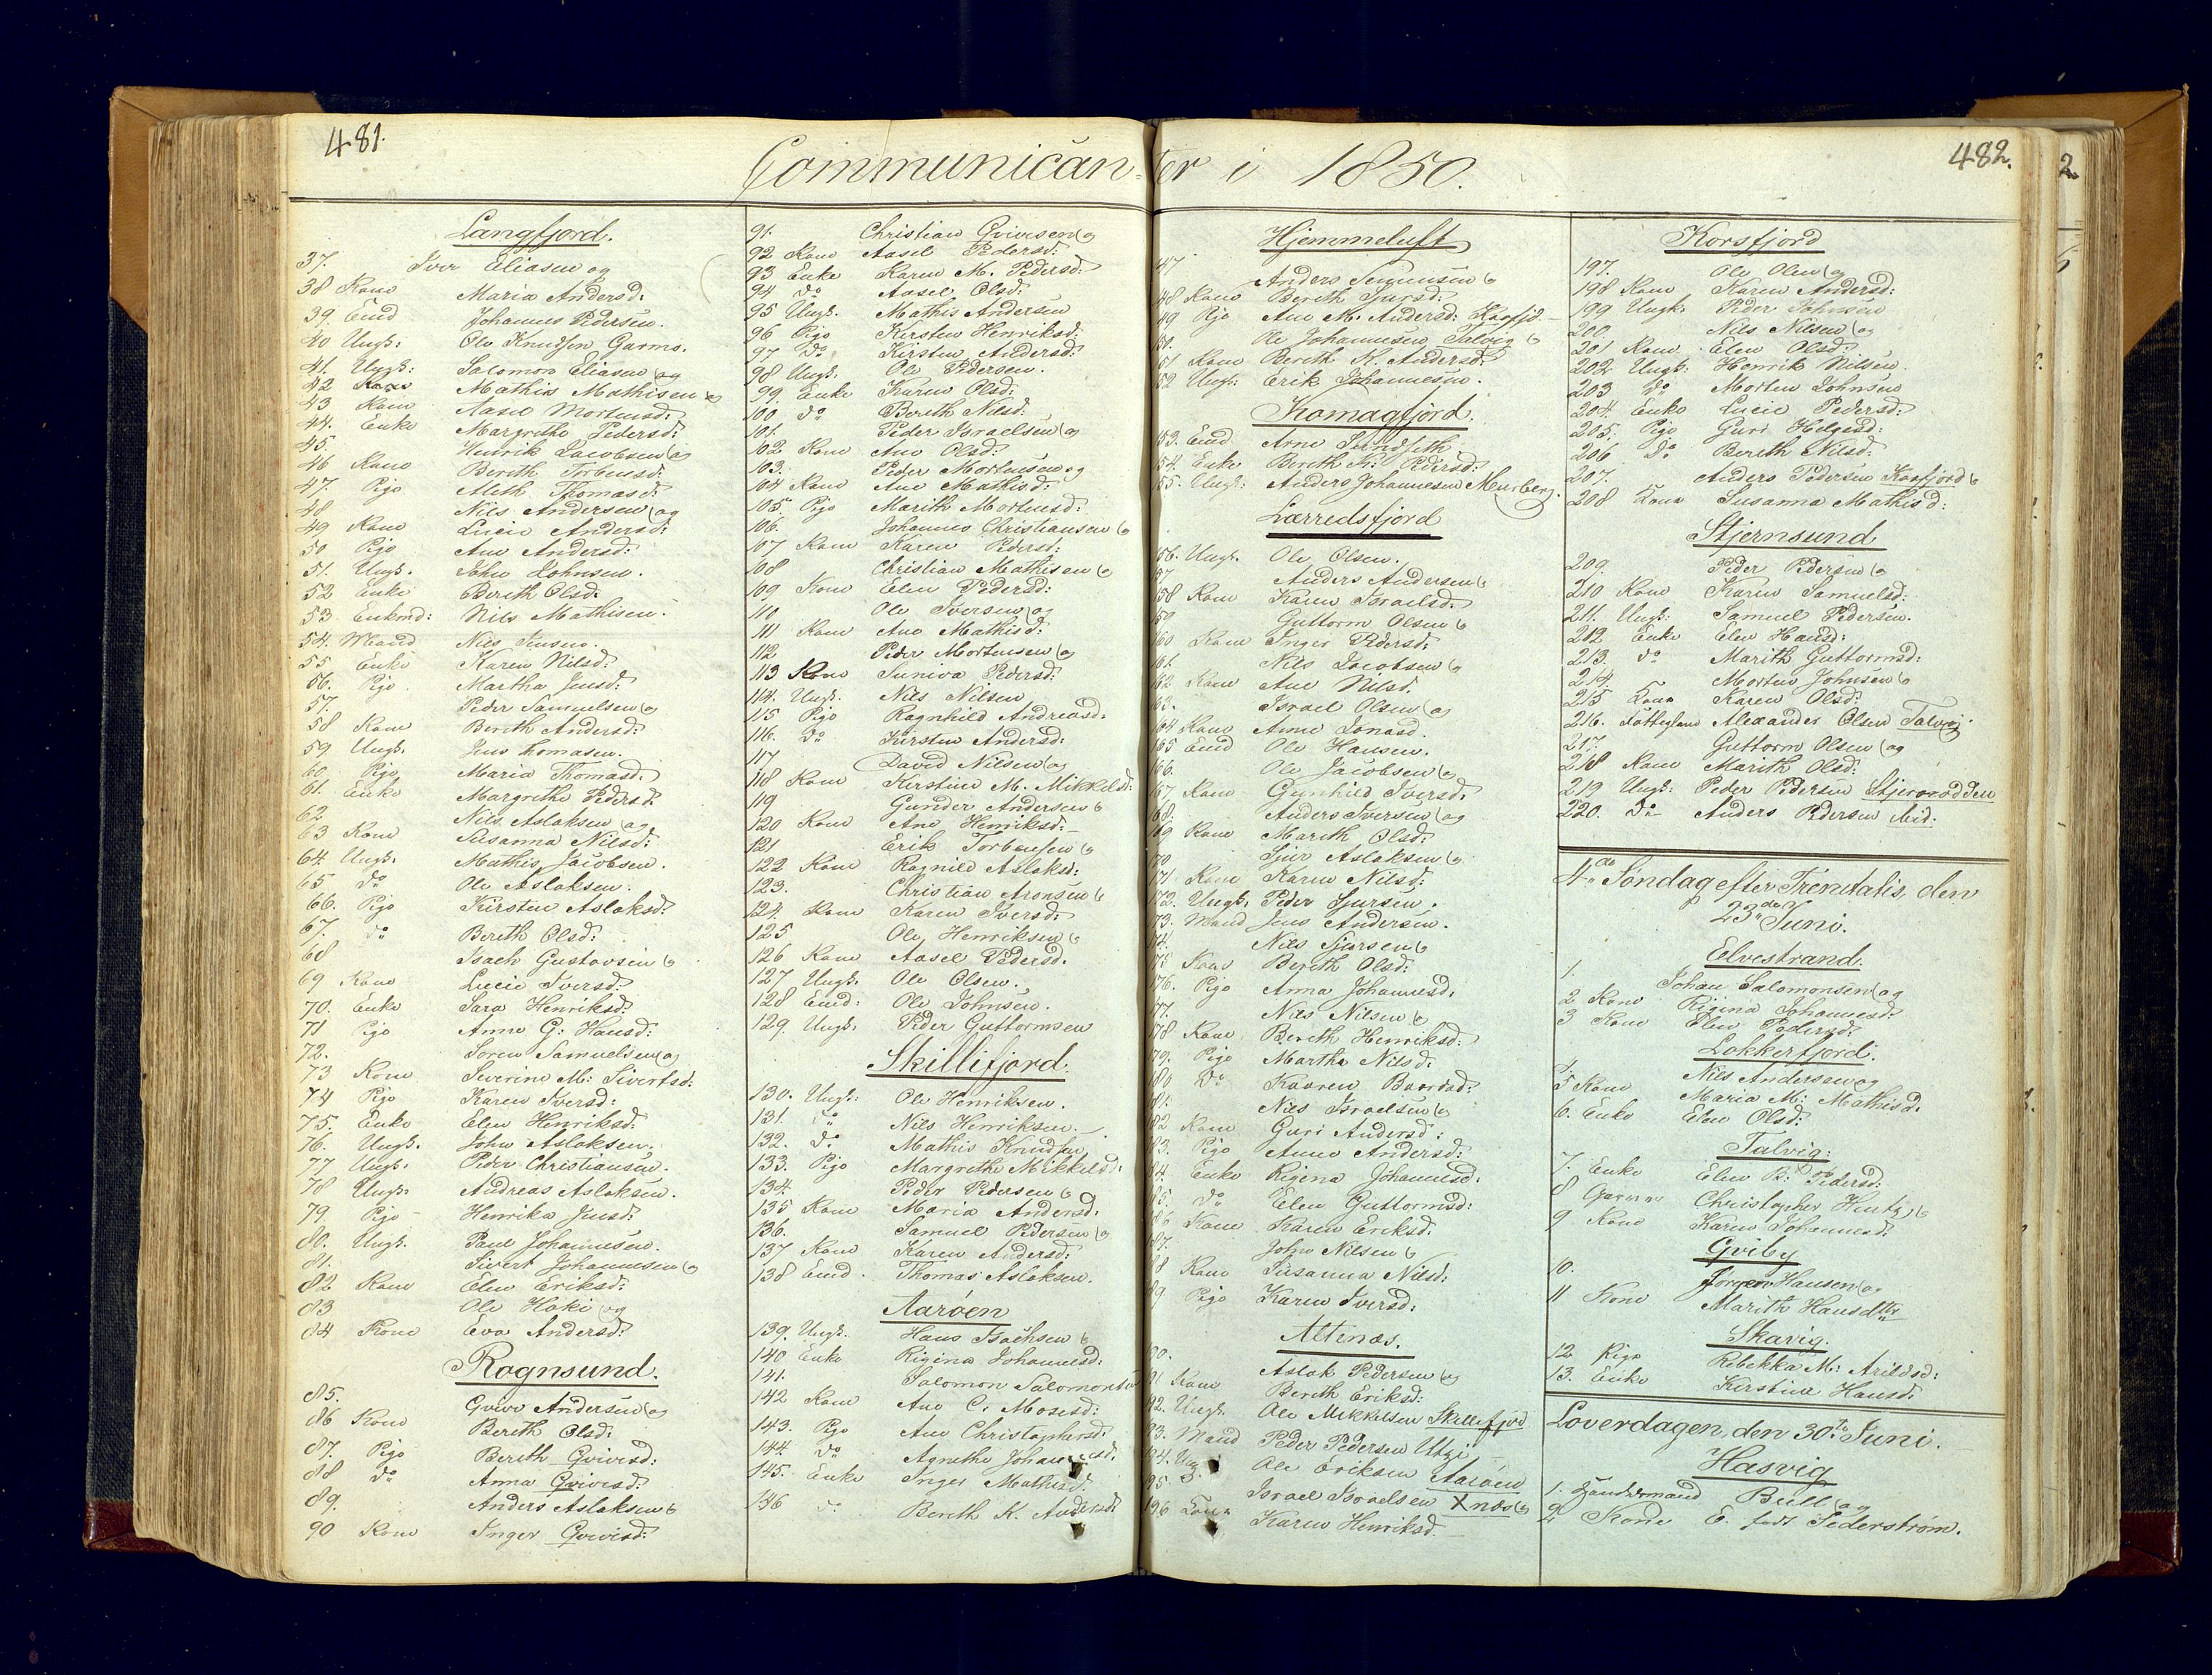 481.
Communican-
Langfjord.
37. Iver Eliasen og
38 Kone Maria Andersd:
39. Emd Johannes Pedersen.
40 Ungk: Ole Knudsen Garmo.
41. Ungk: Salomon Eliasen og
42 Kone Mathis Mathisen og
43 Kone Aasel Mortensd:
44. Enke Margrethe Pedersd:
45. Henrik Jacobsen og
46 Kone Bereth Torbensd:
47. Pige Aleth Thomasd:
48 Nils Andersen og
49 Kone Lucie Andersd:
50 Pige Ane Andersd:
51. Ungk. John Johnsen.
52 Enke Bereth Olsd:
53 Enkemd: Nils Mathisen.
54. Mand Nils Jensen.
55 Enke Karen Nilsd:
56. Pige Martha Jensd:
57. Peder Samuelsen og
58 Kone Bereth Andersd:
59 Ungk. Jens Thomasen.
60. Pige Maria Thomasd:
61. Enke Margrethe Pedersd:
62 Nils Aslaksen og
63 Kone Susanna Nilsd:
64 Ungk. Mathis Jacobsen.
65 do Ole Aslaksen.
66. Pige Kirsten Aslaksd:
67. do Bereth Olsd:
68 Isach Gustavsen og
69 Kone Lucie Iversd:
70. Enke Sara Henriksd:
71 Pige Anne G: Hansd:
72. Søren Samuelsen og
73 Kone Severine M: Sivertsd:
74 Pige Karen Iversd:
75. Enke Elen Henriksd:
76. Ungk. John Aslaksen.
77 Ungk. Peder Christiansen.
78 Ungk. Andreas Aslaksen.
79 Pige Henrika Jensd:
80. Ungk. Paul Johannesen.
81. Sivert Johannesen og
82 Kone Elen Eriksd:
83 Ole Hoki og
84 Kone Eva Andersd:
Rognsund.
85. Qvive Andersen og
86 Kone Bereth Olsd:
87. Pige Bereth Qvivesd:
88 do Anna Qvivesd:
89. Anders Aslaksen og
90 Kone Inger Qvivesd:
91. Christian Qvivesen og
92 Kone Aasel Pedersd:
93 Enke Karen M. Pedersd:
94 do Aasel Olsd:
95 Ungk. Mathis Andersen
96 Pige Kirsten Henriksd:
97 do Kirsten Andersd:
98 Ungk. Ole Pedersen.
99. Enke Karen Olsd:
100 do Bereth Nilsd:
101. Peder Israelsen og
102 Kone Ane Olsd:
103. Peder Mortensen og
104 Kone Ane Mathisd:
105. Pige Marith Mortensd:
106. Johannes Christiansen og
107 Kone Karen Pedersd:
108 Christian Mathisen og
109 Kone Elen Pedersd:
110 Ole Iversen og
111 Kone Ane Mathisd:
112 Peder Mortensen og
113 Kone Suniva Pedersd:
114. Ungk. Nils Nilsen
115 Pige Ragnhild Andreasd:
116. do Kirsten Andersd:
117 David Nilsen og
118 Kone Kirstine M. Mikkelsd:
119 Gunder Andersen og
120 Kone Ane Henriksd:
121 Erik Torbensen og
122 Kone Ragnild Aslaksd:
123. Christian Aronsen og
124. Kone Karen Iversd:
125 Ole Henriksen og
126 Kone Aasel Pedersd.
127 Ungk. Ole Olsen.
128 Emd: Ole Johnsen.
129. Ungk. Peder Guttormsen
Skillifjord.
130. Ungk. Ole Henriksen.
131. do Nils Henriksen.
132. do Mathis Knudsen
133. Pige Margrethe Mikkelsd:
134. Peder Pedersen og
135 Kone Maria Andersd:
136. Samuel Pedersen og
137 Kone Karen Andersd:
138 Emd. Thomas Aslaksen.
Aarøen
139. Ungk. Hans Isachsen og
140 Enke Rigina Johannesd:
141. Salomon Salomonsen
142 Kone Ane C. Mosesd:
143. Pige Ane Christophersd:
144. do Agnethe Johannesd.
145. Enke Inger Mathisd.
146 do Bereth K. Andersd:
ter i 1850.
482.
Hjemmeluft
47 Anders Simensen og
48 Kone Bereth Sjursd:
49 Pige Ane M. Andersd: Kaafjd.
50. Ole Johannesen Talvig og
51. Kone Bereth K. Andersd:
52 Ungk: Erik Johannesen.
Komagfjord.
53. Emd Arne Sundseth
54. Enke Bereth Kr: Pedersd:
55. Ungk: Anders Johannesen Murberg.
Lærredsfjord
56. Ungk. Ole Olsen.
57 Anders Andersen og
58 Kone Karen Israelsd:
59 Guttorm Olsen og
60 Kone Inger Pedersd:
61. Nils Jacobsen og
62 Kone Ane Nilsd.
63. Israel Olsen og
64 Kone Anne Jonasd.
65 Emd Ole Hansen.
66. Ole Jacobsen og
67 Kone Gunhild Iversd.
68. Anders Iversen og
69 Kone Marith Olsd:
70 Sjur Aslaksen og
71 Kone Karen Nilsd:
172. Ungk. Peder Sjursen.
73. Mand Jens Andersen.
74. Nils Sjursen og
75 Kone Bereth Olsd:
176. Pige Anna Johannesd.
77. Nils Nilsen og
78 Kone Bereth Henriksd:
79. Pige Martha Nilsd:
180 do Kaaren Baardsd:
81. Nils Israelsen og
82 Kone Guri Andersd:
83. Pige Anne Andersd:
84. Enke Rigina Johannesd.
85. do Elen Guttormsd:
86 Kone Karen Eriksd:
87. John Nilsen og
88 Kone Susanna Nilsd:
89 Pige Karen Iversd:
Altenæs.
90. Aslak Pedersen og
91 Kone Bereth Eriksd:
92. Ungk. Ole Mikkelsen Skillefjord
93. Mand Peder Pedersen Utzi
94. Ung Ole Eriksen Aarøen
95. Israel Israelsen Xnæs og
196 Kone Karen Henriksd.
Korsfjord
197. Ole Olsen og
198 Kone Karen Andersd:
199 Ungk: Peder Johnsen
200. Nils Nilsen og
201 Kone Elen Olsd:
202 Ungk: Henrik Nilsen.
203 do Morten Johnsen
204. Enke Lucie Pedersd:
205. Pige Guri Helgesd:
206 do Bereth Nilsd:
207. Anders Pedersen Kaafjord og
208 Kone Susanna Mathisd:
Stjernsund
209. Peder Pedersen og
210 Kone Karen Samuelsd:
211. Ungk: Samuel Pedersen.
212 Enke Elen Hansd:
213. do Marith Guttormsd:
214. Morten Johnsen og
215 Kone Karen Olsd:
216. Alexander Olsen Talvig
217. Guttorm Olsen og
218 Kone Marith Olsd:
219 Ungk: Peder Pedersen Stjernodden
220. do Anders Pedersen ibid:
4de Søndag efter Trenitatis, den
23de Juni.
Elvestrand.
1. Johan Salomonsen og
2 Kone Rigina Johannesd:
3 Kone Elen Pedersd:
Lokkerfjord:
4. Nils Andersen og
5 Kone Maria M: Mathisd.
6. Enke Elen Olsd:
Talvig:
7. Enke Elen B: Pedersd:
8 Christopher Hintz og
9 Kone Karen Johannesd:
Qviby
10. Jørgen Hansen og
11 Kone Marith Hansdtr
Skavig.
12 Pige Rebekka M: Arildsd:
13. Enke Kirstine Hansd:
Løverdagen, den 30te Juni.
Hasvig
1. Handelsmand Bull og
2 Kone E. født Sederstrøm.